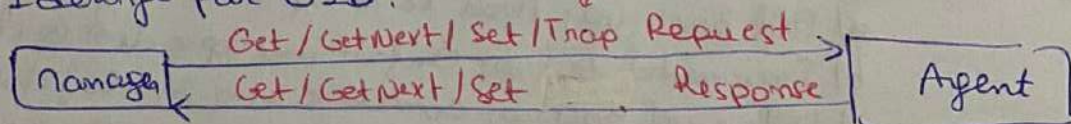 Get / GetNext / Set / Trap Request
Manager
Agent
Get / GetNext / Set Response